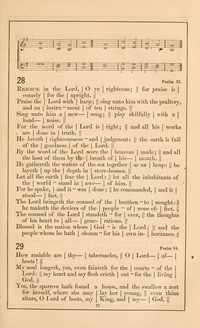 28
Psalm 33.
REJOICE in the Lord, O ye | righteous; || for praise is |
comely | for the | upright. |
Praise the | Lord with | harp; || sing unto him with the psaltry,
and an | instru- | ment of | ten | strings. ||
Sing unto him a | new— | song; || play skilfully | with a |
loud— | noise.
For the word of the | Lord is | right; || and all his | works
are | done in | truth.
He loveth | righteousness | and | judgment; || the earth is full
of the | goodness | of the | Lord. ||
By the word of the Lord were the | heavens | made; || and all
the host of them by the | breath of | his— | mouth. ||
He gathereth the waters of the sea together | as an | heap; || he
layeth | up the | depth in | store-houses. ||
Let all the earth | fear the | Lord; || let all the inhabitants of
the | world | stand in | awe— | of | him. ||
For he spake, | and it | was | done; || he commanded, | and it |
stood— | fast. ||
The Lord bringeth the counsel of the | heathen | to | nought; ||
he maketh the devices of the | people | of | none ef- | fect. ||
The counsel of the Lord | standeth | for | ever, || the thoughts
of his heart to | all— | gene- | rations. ||
Blessed is the nation whose | God | is the | Lord; || and the
people whom he hath | chosen | for his | own in- | heritance. ||
29
Psalm 84.
How amiable are | thy— | tabernacles, || O | Lord— | of— |
hosts! ||
My soul longeth, yea, even fainteth for the | courts | of the |
Lord: || my heart and my flesh crieth | out | for the | living |
God. ||
Yea, the sparrow hath found | a | house, and the swallow a nest
for herself, where she may | lay her | young, || even thine
altars, O Lord of hosts, my | King, and | my— | God. ||